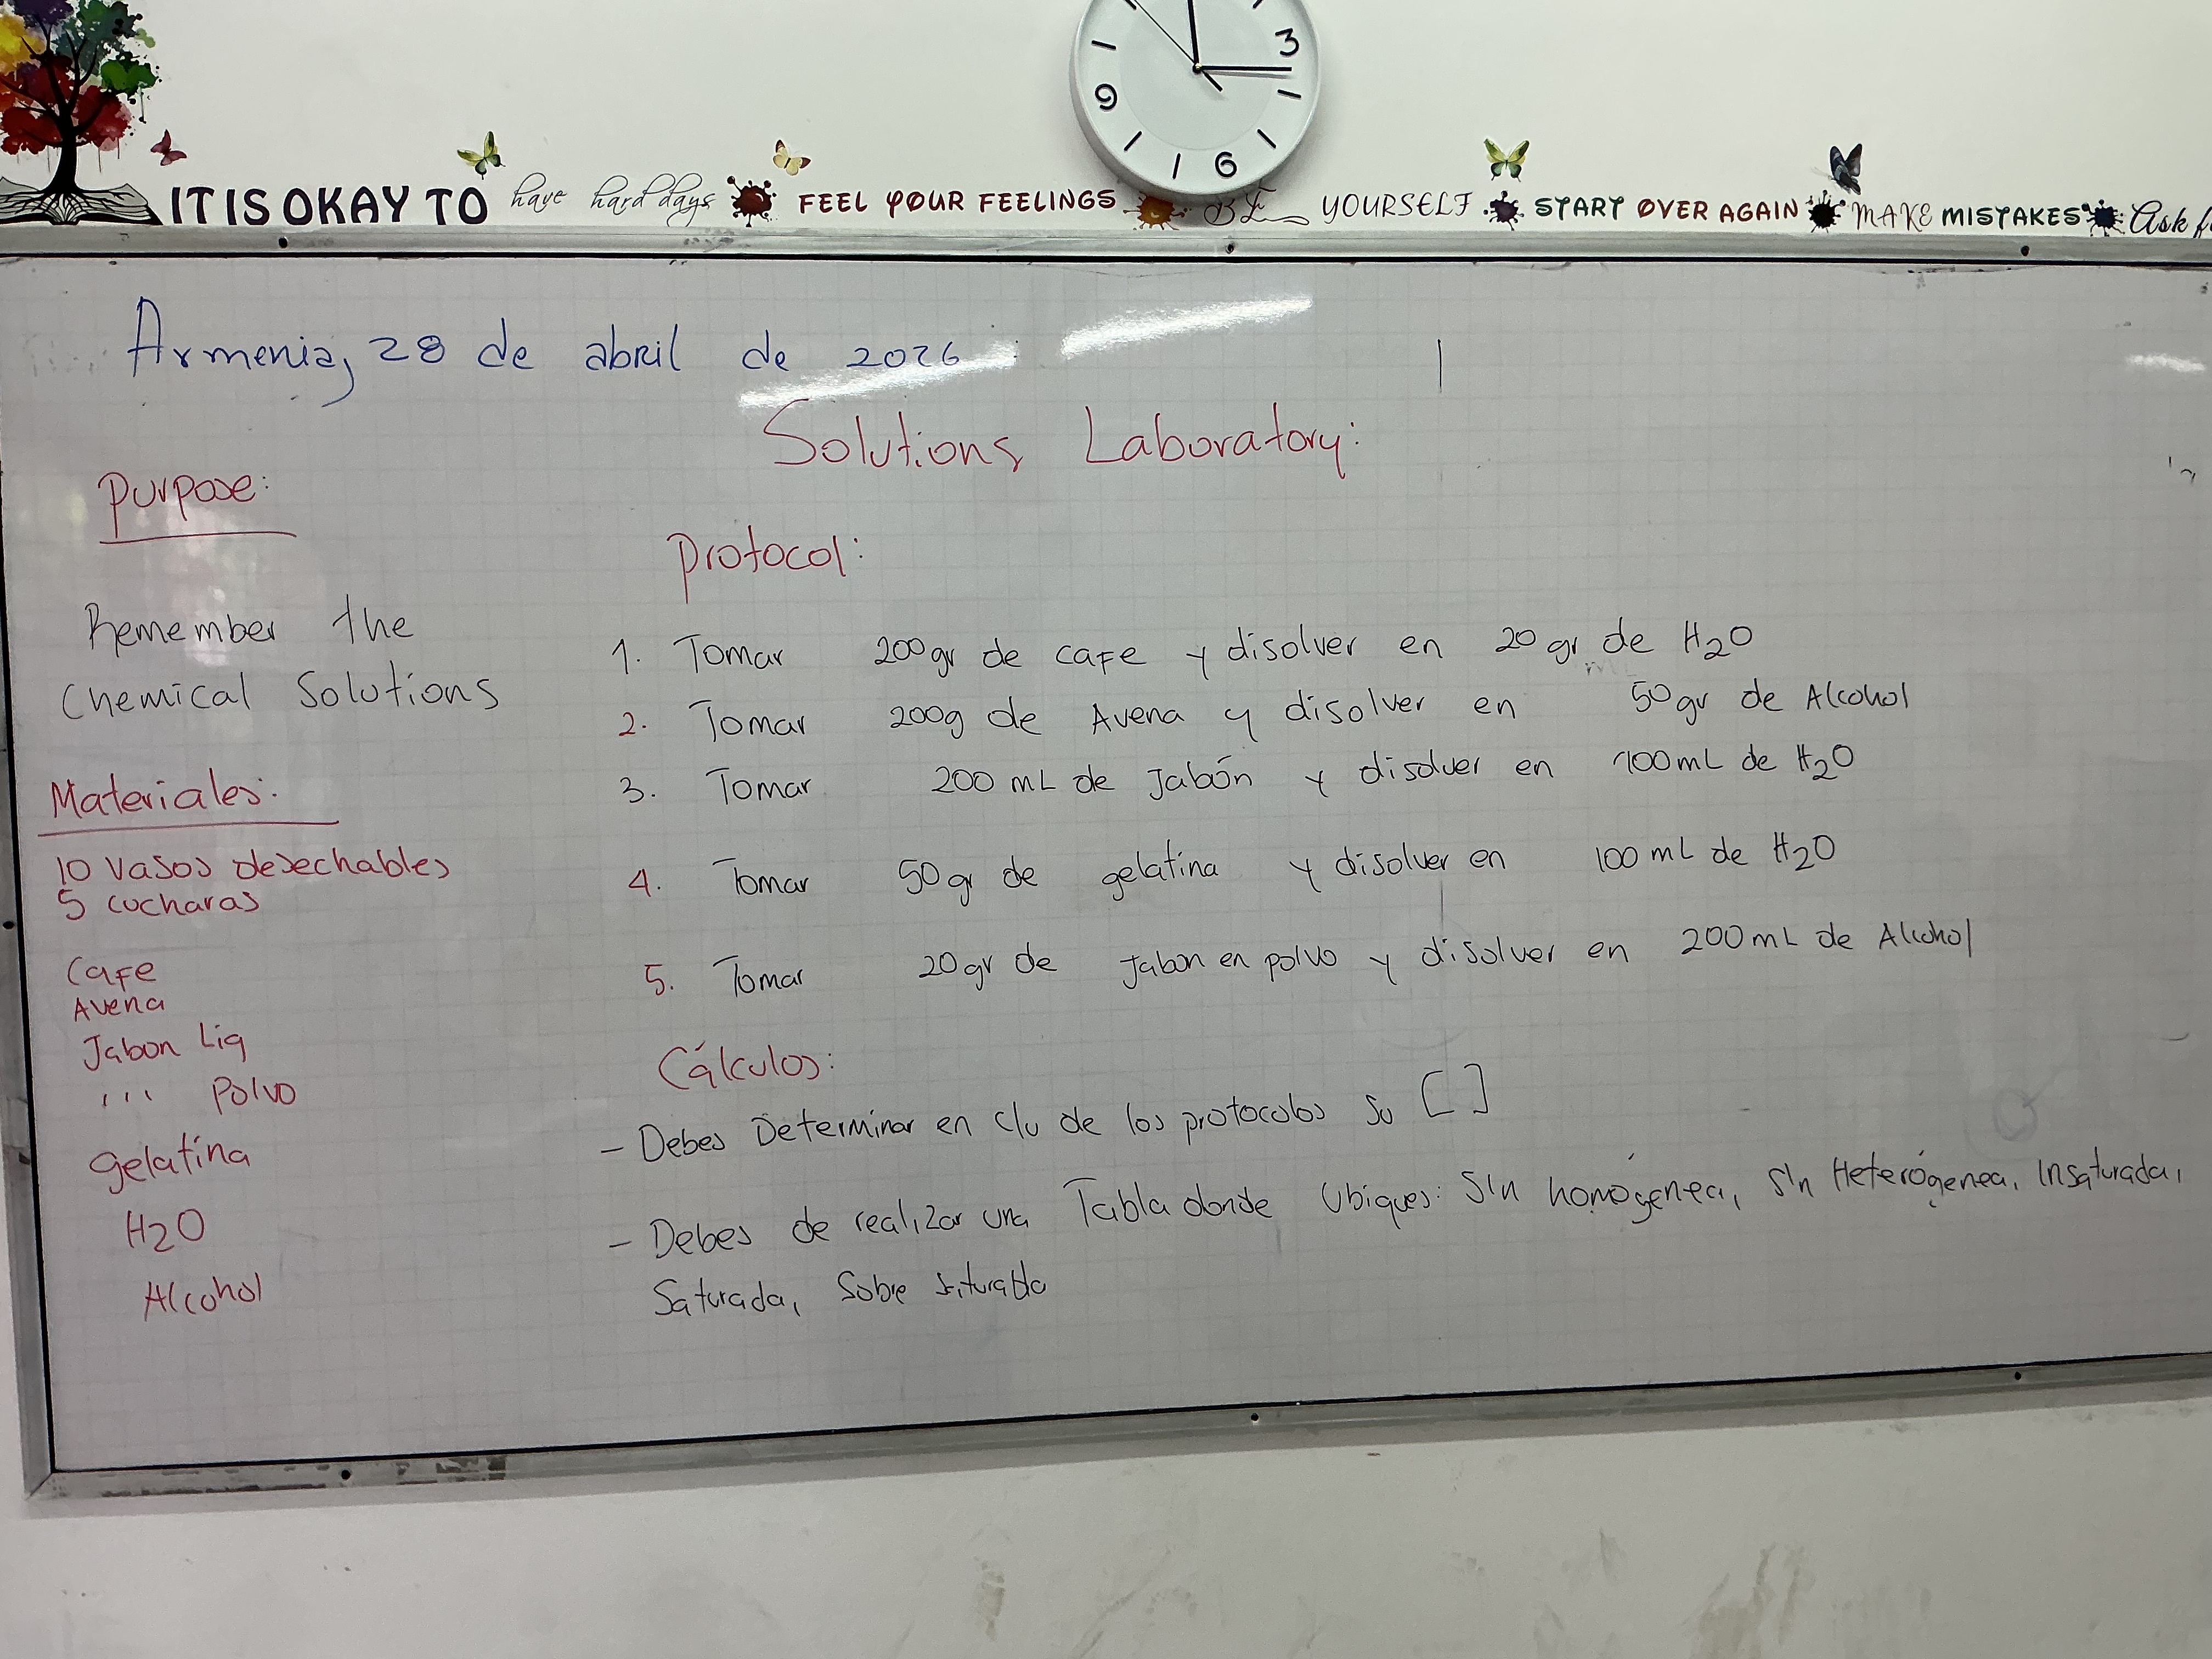 3
9
6
IT IS OKAY TO have hard days FEEL YOUR FEELINGS BE YOURSELF START OVER AGAIN MAKE MISTAKES Ask
Armenia, 28 de abril de 2026
Solutions Laboratory:
Purpose:
Remember the
Chemical Solutions
Materiales:
10 Vasos desechables
5 cucharas
Cafe
Avena
Jabon Liq
,,, Polvo
gelatina
H2O
Alcohol
Protocol:
1. Tomar 200gr de cafe y disolver en 20 gr de H2O
2. Tomar 200g de Avena y disolver en 50gr de Alcohol
3. Tomar 200 mL de Jabón y disolver en 100mL de H2O
4. Tomar 50gr de gelatina y disolver en 100 mL de H2O
5. Tomar 20gr de Jabon en polvo y disolver en 200mL de Alcohol
Cálculos:
- Debes Determinar en c/u de los protocolos su [ ]
- Debes de realizar una Tabla donde Ubiques: S/n homógenea, S/n Heterógenea, Insaturada,
Saturada, Sobre saturada